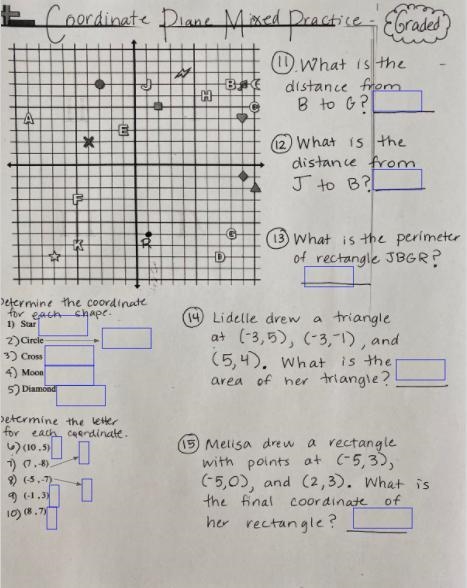 Coordinate Plane Mixed Practice - Graded
J
B
C
H
A
E
F
K
R
G
D
11. What is the
distance from
B to G?
12. What is the
distance from
J to B?
13. What is the perimeter
of rectangle JBGR?
Determine the coordinate
for each shape.
1) Star
2) Circle
3) Cross
4) Moon
5) Diamond
14. Lidelle drew a triangle
at (-3,5), (-3,-1), and
(5,4). What is the
area of her triangle?
Determine the letter
for each coordinate.
6) (10,5)
7) (7,-8)
8) (-5,-7)
9) (-1,3)
10) (8,7)
15. Melisa drew a rectangle
with points at (-5,3),
(-5,0), and (2,3). What is
the final coordinate of
her rectangle?